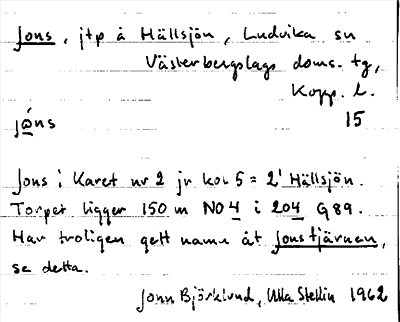 Jons, jtp å Hällsjön, Ludvika sn
Västerbergslags doms. tg,
Kopp. l.
15
jǫ́ns
Jons i Karet nr 2 jr kol 5 = 2¹ Hällsjön.
Torpet ligger 150 m NO 4 i 204 G 89.
Har troligen gett namn åt Jonstjärnen,
se detta.
John Björklund, Ulla Stellin 1962